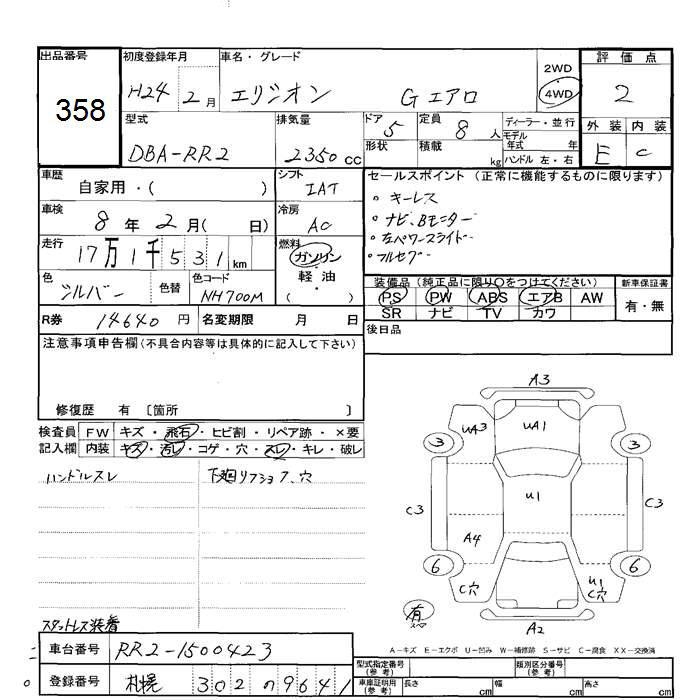 出品番号
358
初度登録年月
H24 2月
車名・グレード
エリシオン Gエアロ
2WD
4WD
評価点
2
外装 内装
E C
型式
DBA-RR2
排気量
2350cc
ドア
5
形状
定員
8人
積載
kg
ディーラー・並行
モデル
年式 年
ハンドル 左・右
車歴
自家用・( )
シフト
IAT
車検
8年2月( 日)
冷房
AC
走行
17万1千531km
燃料
ガソリン
軽・油
( )
色
シルバー
色替
色コード
NH700M
R券 14640円
名変期限 月 日
セールスポイント (正常に機能するものに限ります)
。キーレス
。ナビ、Bモニター
。左パワースライド
。フルセグ
装備品 (純正品に限り○をつけてください)
PS PW ABS エアB AW
SR ナビ TV カワ
新車保証書
有・無
後日品
注意事項申告欄(不具合内容等は具体的に記入して下さい)
修復歴 有 〔箇所 〕
検査員 FW キズ・飛石・ヒビ割・リペア跡・×要
記入欄 内装 キズ・汚レ・コゲ・穴・スレ・キレ・破レ
ハンドルスレ
下廻りフショク、穴
スタットレス装着
A3
UA3 UA1
3 3
U1
C3 C3
A4
6 6
C穴 U1
C穴
有
スペア
A2
A-キズ E-エクボ U-凹み W-補修跡 S-サビ C-腐食 XX-交換済
車台番号 RR2-1500423
登録番号 札幌 302 の 9641
型式指定番号
(参考)
類別区分番号
(参考)
車庫証明用
(参考)
長さ cm 幅 cm 高さ cm